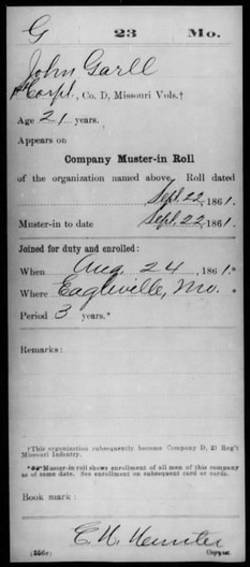 G 23 Mo.
John Garll
Corpl., Co. D, Missouri Vols.†
Age 21 years.
Appears on
Company Muster-in Roll
of the organization named above. Roll dated
Sept. 22, 1861.
Muster-in to date Sept. 22, 1861.
Joined for duty and enrolled:
When Aug 24, 1861.*
Where Eagleville, Mo. *
Period 3 years.*
Remarks:
†This organization subsequently became Company D, 23 Reg't
Missouri Infantry.
Muster-in roll shows enrollment of all men of this company
as of same date. See enrollment on subsequent card or cards.
Book mark:
(356c) Copyist.